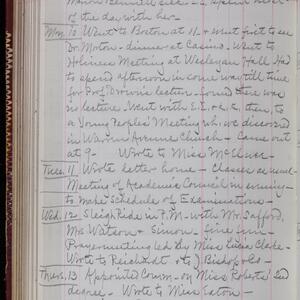 of the day with her.
Mon. 10 Went to Boston at 11 & went first to see
Dr Morton - dinner at Casino. Went to
Holiness Meeting at Wesleyan Hall. Had
to spend afternoon in some way till time
for Prof. Drown's lecture - found there was
no lecture. Went with E. & K. then, to
a Young Peoples' Meeting which we discovered
in Warren Avenue Church - Came out
at 9 - Wrote to Miss
Tues. 11. Wrote letter home - Classes as usual
Meeting of Academic Council in evening
to make schedule of Examinations.
Wed. 12. Sleigh Ride in P.M. with Mr. Safford,
Ms Watson & Simon. fine fun -
Prayermeeting led by Miss Clarke.
Wrote to Reichardt & to J. Bishop
Thurs. 13. Appointed Comm. on Miss Roberts' 2nd
degree. Wrote to Miss Eaton -